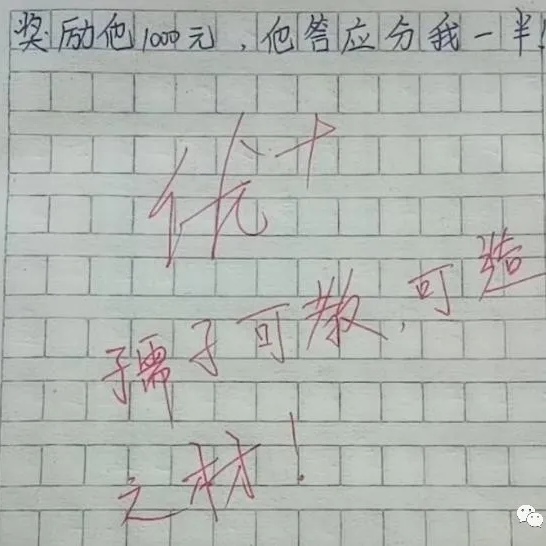 奖励他1000元，他答应分我一半!
优+
孺子可教，可造
之材！